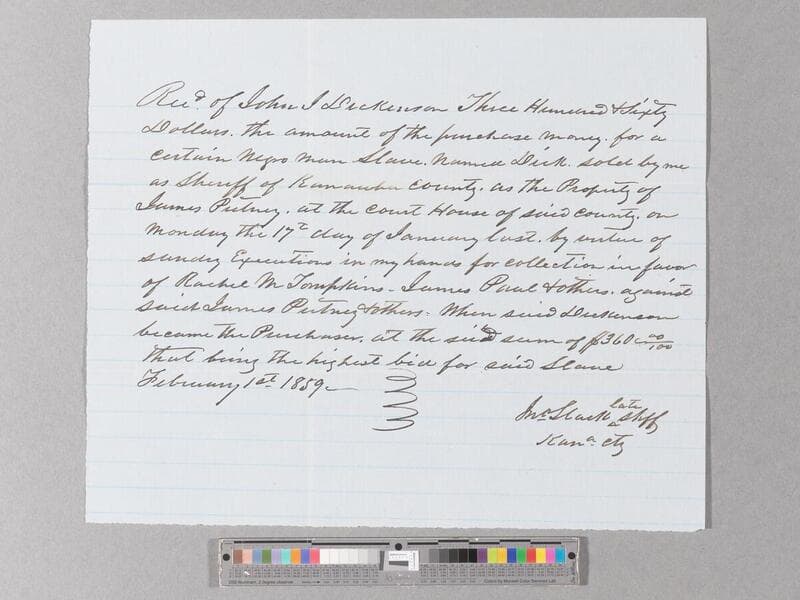 Recd. of John J Dickenson Three Hundred & Sixty
Dollars. the amount of the purchase money. for a
certain Negro man Slave. named Dick. sold by me
as Sheriff of Kanawha County. as the Property of
James Putney. at the court House of said county. on
Monday the 17th day of January last. by virtue of
sundry Executions in my hands for collection in favor
of Rachel M Tompkins - James Paul & others. against
said James Putney & others. When said Dickenson
became the Purchaser, at the said sum of $360 00/100
that being the highest bid for said Slave
February 1st. 1859
Jno Slack late Shff
Kana. cty